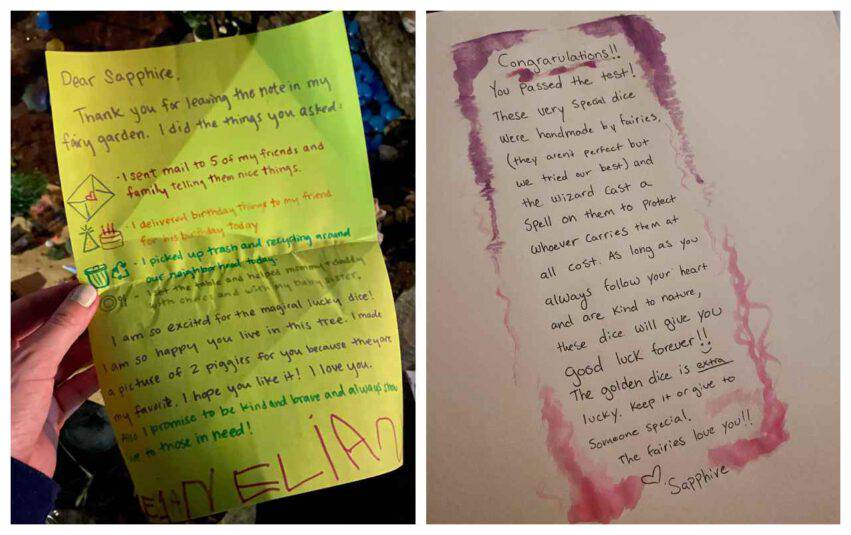 Dear Sapphire,
Thank you for leaving the note in my
fairy garden. I did the things you asked:
- I sent mail to 5 of my friends and
family telling them nice things.
- I delivered birthday things to my friend
for his birthday today
- I picked up trash and recycling around
our neighborhood today.
- I set the table and helped mommy + daddy
with chores and with my baby sister.
I am so excited for the magical lucky dice!
I am so happy you live in this tree. I made
a picture of 2 piggies for you because they are
my favorite. I hope you like it! I love you.
Also I promise to be kind and brave and always show
love to those in need!
ELIAn
Congrarulations!!
You Passed the test!
These very special dice
were handmade by fairies,
(they aren't perfect but
we tried our best) and
the wizard cast a
Spell on them to protect
whoever carries them at
all cost. As long as you
always follow your heart
and are kind to nature,
these dice will give you
good luck forever!!
The golden dice is extra
lucky. Keep it or give to
Someone special.
The fairies love you!!
Sapphire